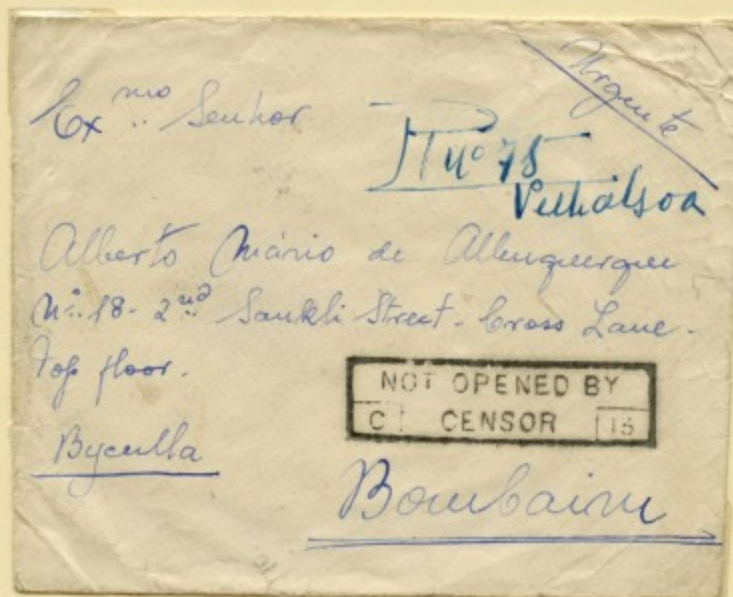 Urgente
Ex.mo Senhor
nº 75
Alberto Mário de Albuquerque
Nº 18 - 2nd Sankli Street - Cross Lane -
Top floor.
NOT OPENED BY
C CENSOR 15
Byculla
Bombaim